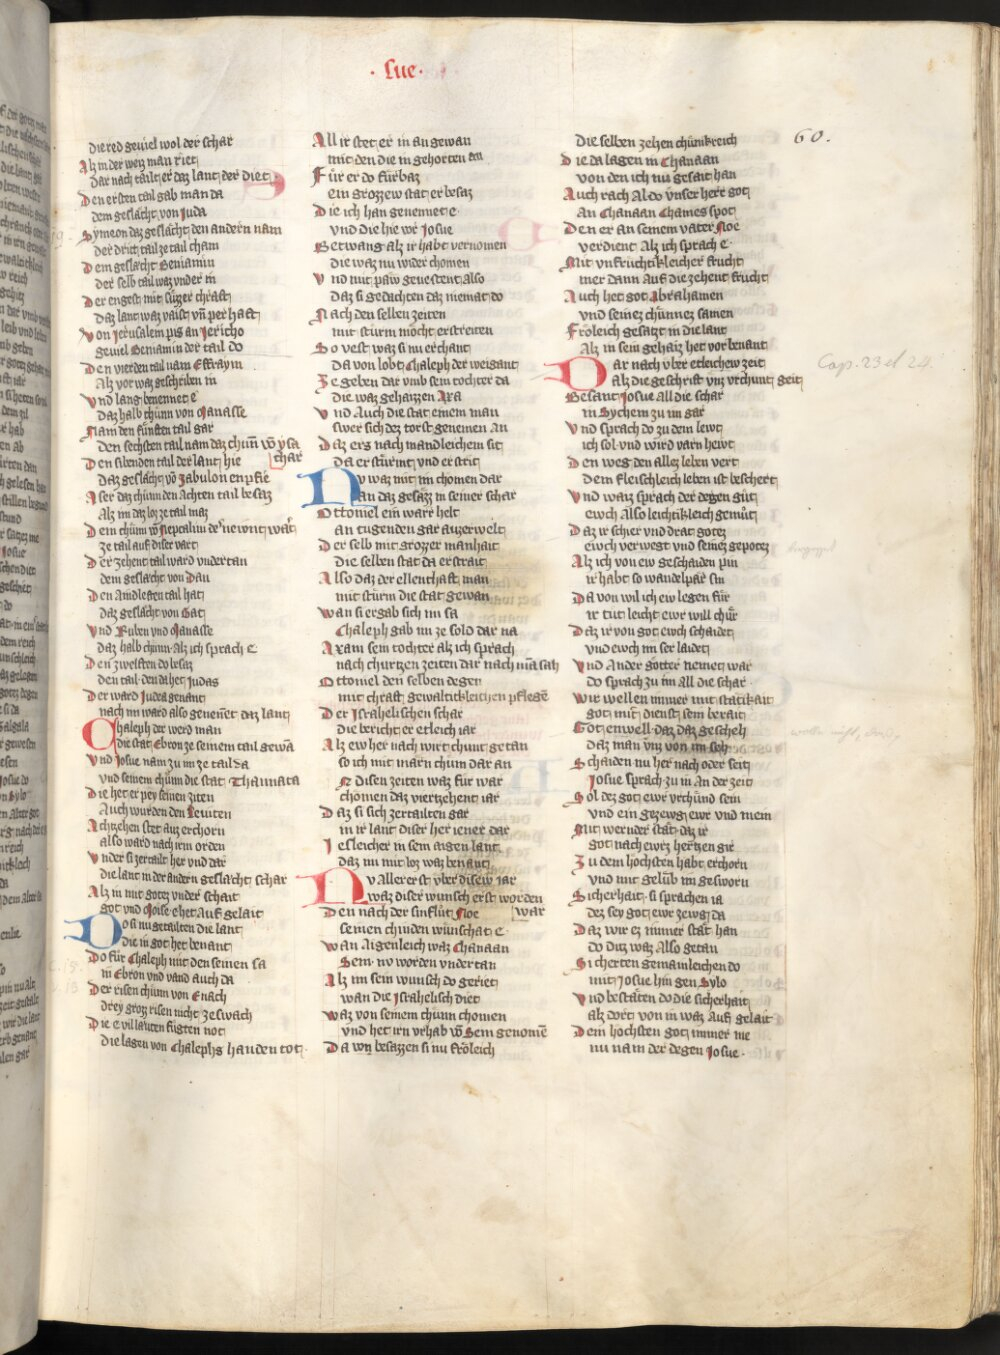 · Sue ·
60.
die red geviel wol der schar
Alz in der weg man riet
Dar nach tailt er daz lant der diet
Den ersten tail gab man da
dem geslächt von Juda
Symeon daz geslächt den andern nam
der drit tail ze tail cham
Dem geslächt Beniamin
der selb tail waz under in
Der engest mit süzzer chraft
Daz lant waz vaist vn̄ perhaft
Von Jerusalem pis an Jericho
geviel Beniamin der tail do
Den vierden tail nam Effraym
Alz vor waz geschriben in
Vnd lang benennet e
Daz halb chünn von Manasse
Nam den fünften tail gar
den sechsten tail nam daz chün̄ vō ysa
char
Den sibenden tail der lant hie
daz geslächt vō Zabulon enpfie
Aser daz chünn den Achten tail besaz
Alz im daz loz ze tail maz
Dem chünn vō Neptalim der newnt wart
ze tail auf diser vart
Der zehent tail ward undertan
dem geslächt von Dan
Den Aindleften tail hat
daz geslächt von Gat
Vnd Ruben vnd Manasse
daz halb chünn alz ich sprach e
Den zwelften do besaz
den tail den da het Judas
Der ward Judea genant
nach im ward also genen̄et daz lant
Chaleph der werd man
die stat Ebron ze seinem tail gewā
Vnd Josue nam zu im ze tail da
Vnd seinem chünn die stat Thamnata
Die het er pey seinen ziten
Auch wurden den Leviten
Achtzehen stet auz erchorn
also ward nach irm orden
Vnder si zertailt her vnd dar
die lant in der andern geslächt schar
Alz in mit gotez vnder schait
got vnd Moise e het auf gelait
Do si nu getailten die lant
die in got het benant
Do für Chaleph mit den seinen sa
in Ebron vnd vand auch da
Der risen chünn von Enach
drey groz risen nicht ze swach
Die e vil läuten fügten not
die lagen von Chalephs handen tot
All ir stet er in an gewan
mit den die in gehorten an
Für er do fürbaz
ein grozzew stat er besaz
Die ich han genennet e
vnd die hie wr̄ Josue
Betwang alz ir habt vernomen
die waz nu wider chomen
Vnd mit paw gevestent also
daz si gedachten daz niemat do
Nach den selben zeiten
mit sturm möcht erstreiten
So vest waz si nu erchant
da von lobt Chaleph der weigant
Ze geben dar vmb sein tochter da
die waz gehaizzen Axa
Vnd Auch die stat einem man
swer sich dez torst genemen an
Daz ers nach mandleichem sit
da er stürmt vnd er strit
Nu waz mit im chomen dar
an daz gesäzz in seiner schar
Ottoniel ein warr helt
an tugenden gar auzerwelt
Der selb mit grozzer manhait
die selben stat da erstrait
Also daz der ellenthaft man
mit stürm die stat gewan
Wan si ergab sich im sa
Chaleph gab im ze sold dar na
Axam sein tochter alz ich sprach
nach churtzen zeiten dar nach mā sah
Ottoniel den selben degen
mit chraft gewaltichleichen pflegē
Der Israhelischen schar
die bericht er etleich iar
Alz ew her nach wirt chunt getan
so ich mit märn chum dar an
N disen zeiten waz für war
chomen daz viertzehent iar
Daz si sich zertailten gar
in ir lant diser her iener dar
Iesleicher in sein aigen lant
daz im mit loz waz benant
Nu aller erst über disew iar
waz diser wunsch erst worden
war
Den nach der sinflüt Noe
seinen chinden wünschat e
Wan aigenleich waz Chanaan
Sem nw worden vndertan
Alz im sein wunsch do geriet
wan die Israhelisch diet
Waz von seinem chunn chomen
vnd het irn vrhab vō Sem genomē
Da wn̄ besazzen si nu fröleich
die selben zehen chünikreich
Die da lagen in Chanaan
von den ich nu gesait han
Auch rach Al do vnser herr got
An Chanaan Chames spot
Den er an seinem vater Noe
verdient Alz ich sprach e
Mit vnfrüchtikleicher frucht
mer dann auf die zehent frucht
Auch het got Abrahamen
vnd seinez chünnez samen
Fröleich gesatzt in die lant
Alz in sein gehaiz het vor benant
Dar nach vber etleichew zeit
Alz die geschrift vnz vrchunt geit
Besant Josue all die schar
in Sychem zu im gar
Vnd sprach do zu dem lewt
ich sol vnd wird varn hewt
Den weg den allez leben vert
dem fleischleich leben ist beschert
Vnd waiz sprach der degen güt
ewch also leichtikleich gemüt
Daz ir schier vnd drat gotez
ewch verwegt vnd seinez gepotez
Alz ich von ew geschaiden pin
ir habt so wandelpär sin
Da von wil ich ew legen für
ir tut leicht ewr will chür
Daz ir von got ewch schaidet
vnd ewch im ser laidet
Vnd Ander götter nemet war
do sprach zu im all die schar
Wir wellen immer mit statikait
got mit dienst sein berait
Got enwell daz daz gescheh
daz man vnz von im seh
Schaiden nu her nach oder seit
Josue sprach zu in an der zeit
Sol dez got ewr vrchünd sein
vnd ein gezewg ewr vnd mein
Mit werender stat daz ir
got nach ewrz hertzen gir
Zu dem höchsten habt erchorn
vnd mit gelüb im gesworn
Sicherhait si sprachen ia
dez sey got ewr zewg da
Daz wir ez immer stät han
do diz waz also getan
Sicherten gemainleichen do
mit Josue hin gen Sylo
Vnd bestäten do die sicherhait
alz dort von in waz auf gelait
Dem höchsten got immer me
nu nam der degen Josue
Cap. 23 et 24.